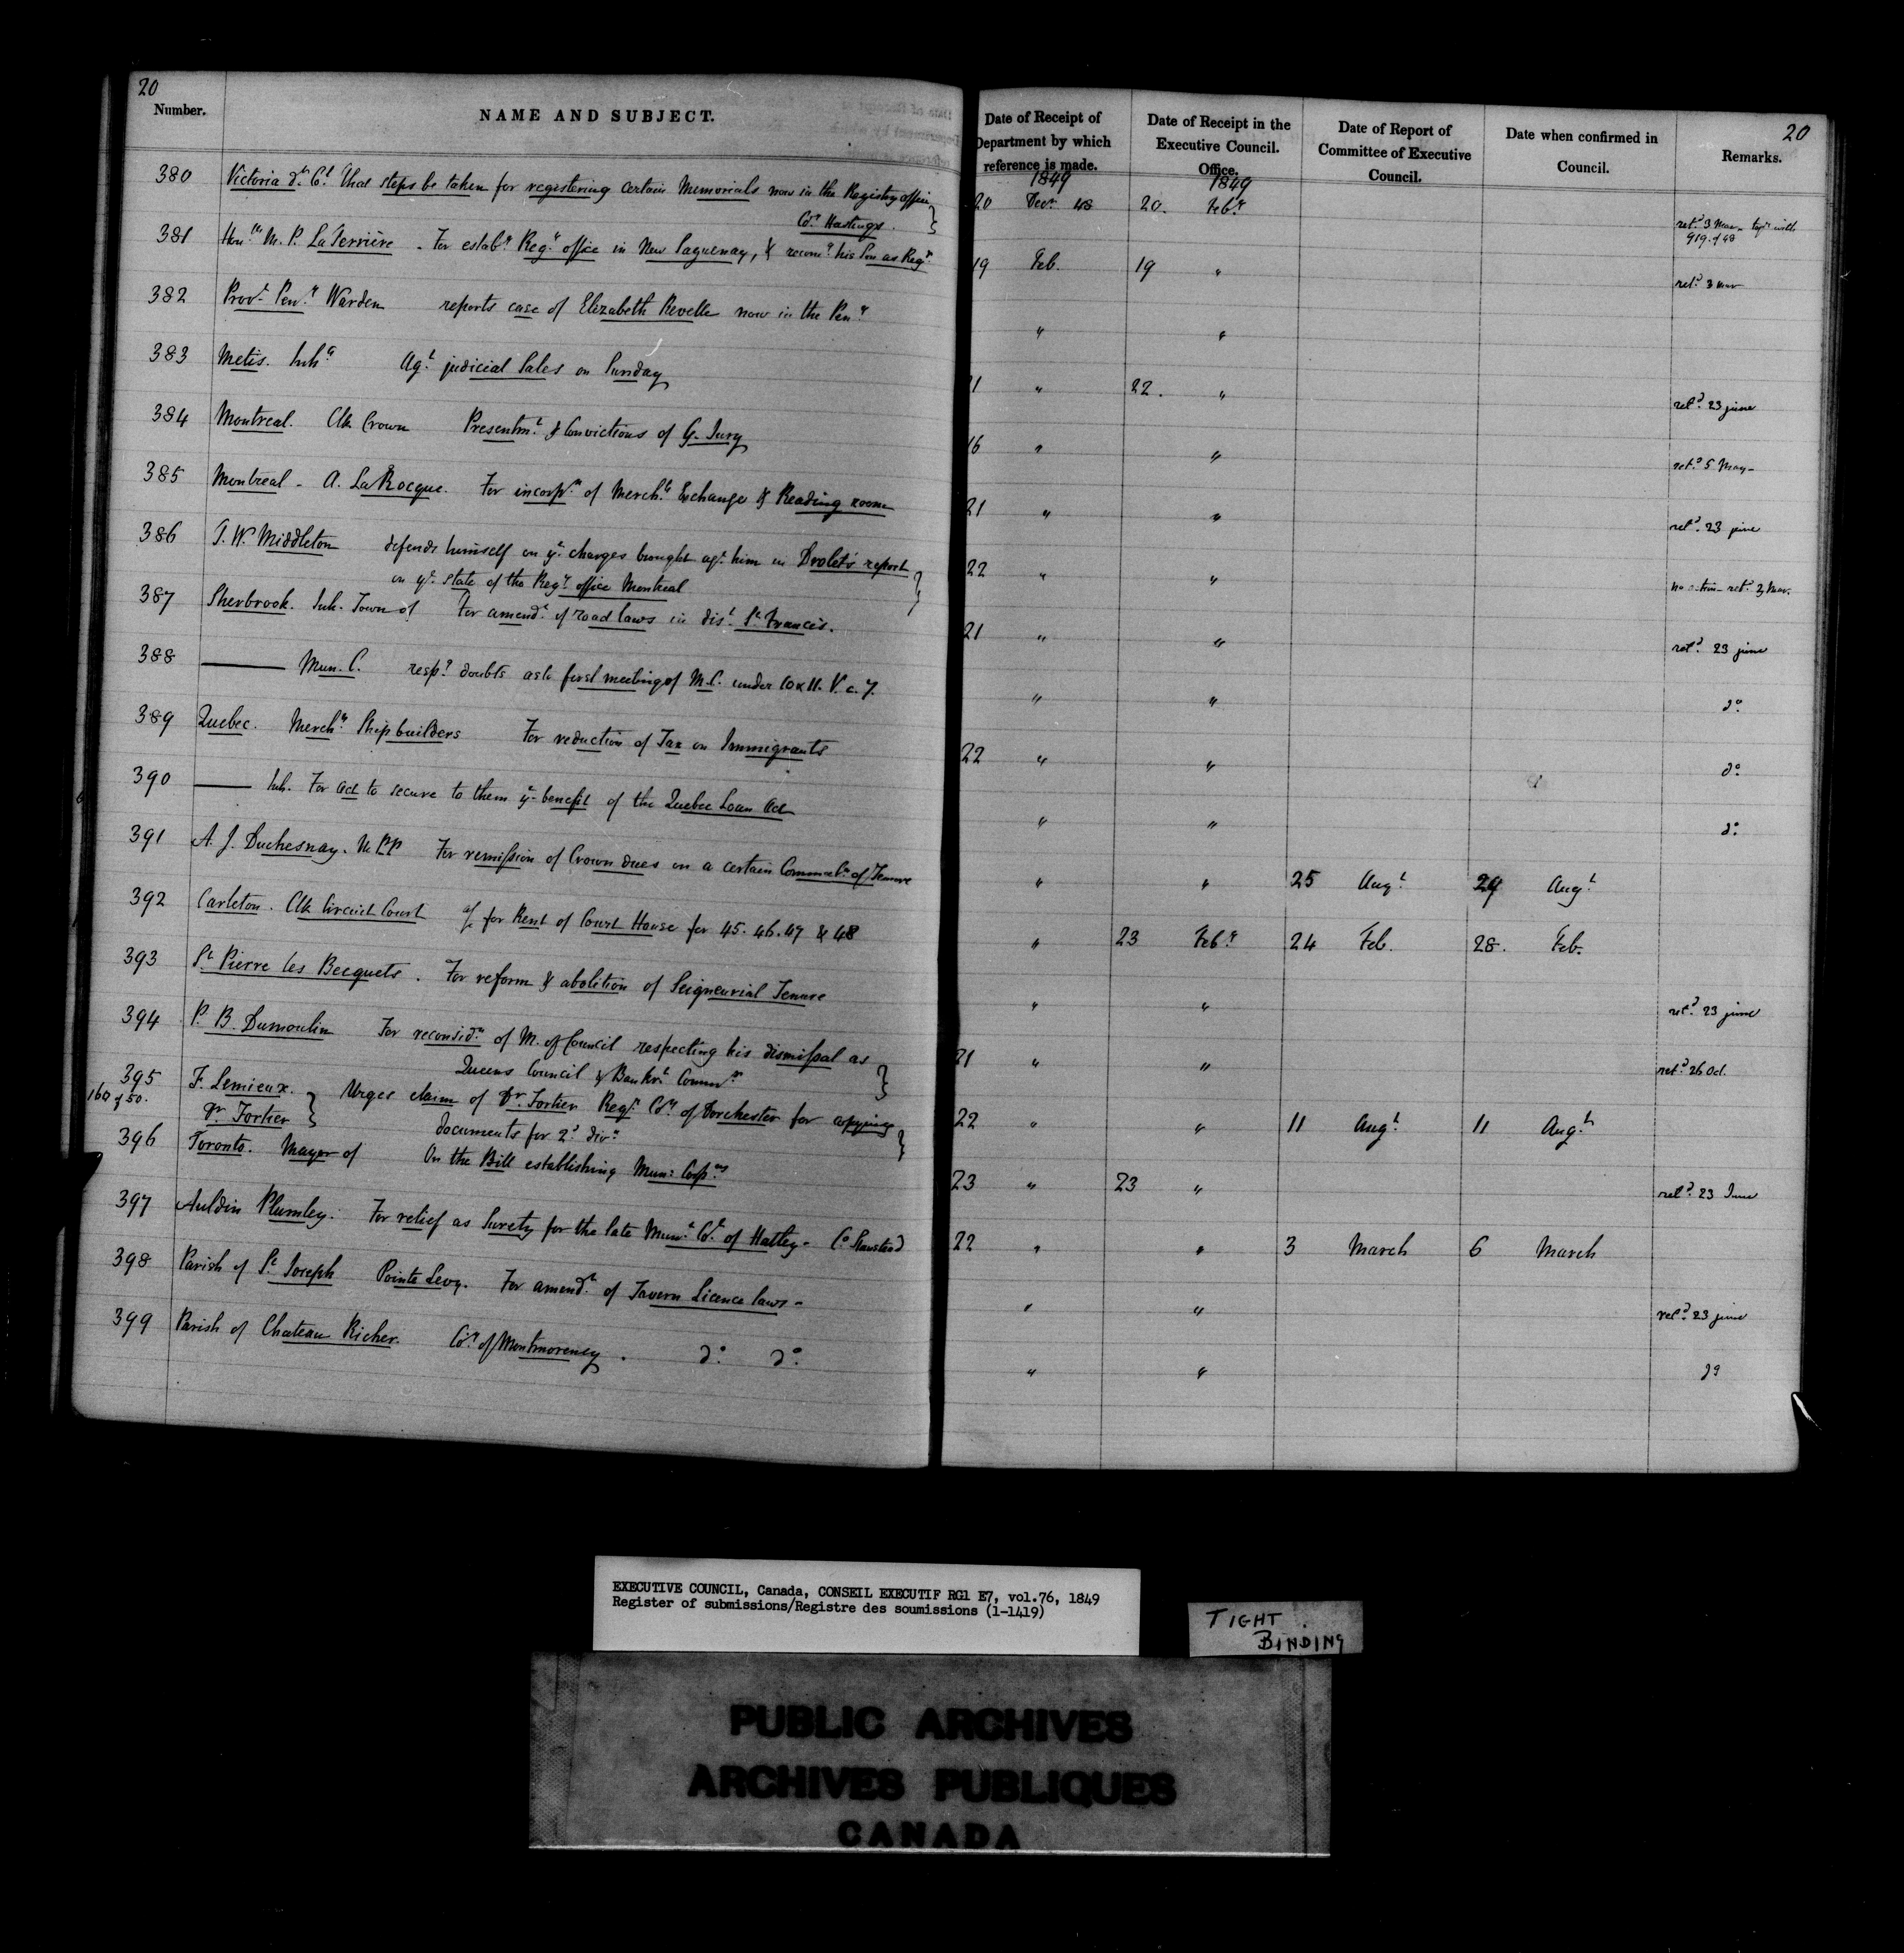 20
Number. NAME AND SUBJECT. Date of Receipt of Department by which reference is made. Date of Receipt in the Executive Council. Office. Date of Report of Committee of Executive Council. Date when confirmed in Council. Remarks. 20
1849 1849
380 Victoria dt Cl. That steps be taken for registering certain Memorials now in the Registry office 20 Decr 48 20. Feby retd 3 Mar. with 919 of 48
Coy Hastings.
381 Honble M. P. LaTerrière. For estabt Regy office in New Saguenay, & recomds his Son as Regr 19 Feb. 19 " retd 3 Mar
382 Provl Peny Warden reports case of Elizabeth Revelle now in the Peny " "
383 Metis. Inhs Agt judicial Sales on Sunday 21 " 22. " retd 23 june
384 Montreal. Clk Crown Presentmt & Convictions of G. Jury 16 " " retd 5 May
385 Montreal - A. LaRocque. For incorpn of Mercht Exchange & Reading room 21 " " retd 23 june
386 T. W. Middleton defends himself on ye charges brought agt him in Drolet's report 22 " " no action retd 3 Mar.
on ye state of the Regy office Montreal
387 Sherbrook. Inh. Town of For amendt of road laws in dist St Francis. 21 " " retd 23 june
388 —— Mun. C. respg doubts as to first meeting of M.C. under 10 & 11. V. c. 7. " " do
389 Quebec. Merchts Shipbuilders For reduction of Tax on Immigrants 22 " " do
390 —— Inh. For act to secure to them ye benefit of the Quebec Loan Act " " do
391 A. J. Duchesnay. M.P.P. For remission of Crown dues on a certain Commutn of Tenure " " 25 Augt 29 Augt
392 Carleton. Clk Circuit Court a/c for Rent of Court House for 45. 46. 47 & 48 " 23 Feby 24 Feb. 28. Feb.
393 St Pierre les Becquets. For reform & abolition of Seigneurial Tenure " " retd 23 june
394 P. B. Dumoulin For reconsidn of M. of Council respecting his dismissal as 21 " " retd 26 Oct.
Queens Council & Bankrt Commr
395 F. Lemieux. Urges claim of Dr Fortier Regr Coy of Dorchester for copying 22 " " 11 Augt 11 Augt
160 of 50. Dr Fortier documents for 2d divn
396 Toronto. Mayor of On the Bill establishing Mun: Corpns 23 " 23 " retd 23 June
397 Auldin Plumley. For relief as Surety for the late Munl Cl. of Hatley - Co Stanstead 22 " " 3 March 6 March
398 Parish of St Joseph Pointe Levy. For amendt of Tavern Licence laws - " " retd 23 june
399 Parish of Chateau Richer. Coy of Montmorency. do do " " do
EXECUTIVE COUNCIL, Canada, CONSEIL EXECUTIF RG1 E7, vol.76, 1849
Register of submissions/Registre des soumissions (1-1419)
TIGHT
BINDING
PUBLIC ARCHIVES
ARCHIVES PUBLIQUES
CANADA